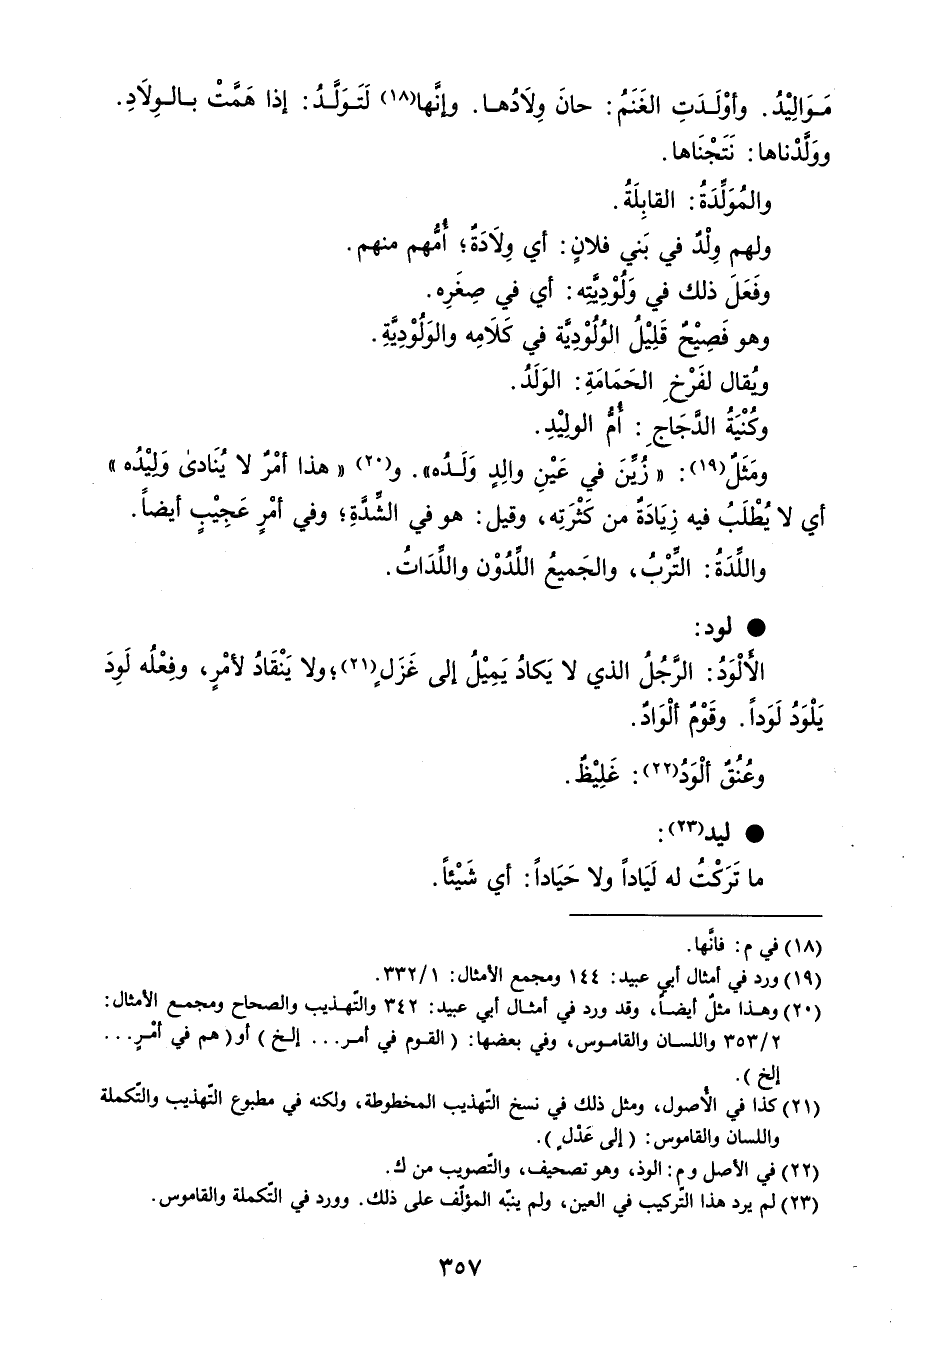 مَـوَالِيْدُ. وأوْلَـدَتِ الغَنَمُ: حانَ وِلَادُهـا. وإنَّها(١٨) لَتَـوَلَّـدُ: إذا هَمَّتْ بـالـوِلَادِ.
ووَلَّدْناها: نَتَجْنَاها.
والمُوَلِّدَةُ: القابِلَةُ.
ولهم وِلْدٌ في بَني فلانٍ: أي وِلَادَةٌ؛ أُمُّهم منهم.
وفَعَلَ ذلك في وَلُوْدِيَّتِه: أي في صِغَرِه.
وهو فَصِيْحٌ قَلِيْلُ الوُلُوْدِيَّة في كَلَامِه والوَلُوْدِيَّةِ.
ويُقال لفَرْخِ الحَمَامَةِ: الوَلَدُ.
وكُنْيَةُ الدَّجَاجِ: أُمُّ الوليْدِ.
ومَثَلٌ(١٩): « زُيِّنَ في عَيْنِ والِدٍ وَلَـدُه». و(٢٠) « هذا أمْرٌ لا يُنَادىٰ وَلِيْدُه »
أي لا يُطْلَبُ فيه زِيَادَةٌ من كَثْرَتِه، وقيل: هو في الشِّدَّةِ؛ وفي أمْرٍ عَجِيْبٍ أيضاً.
واللِّدَةُ: التِّرْبُ، والجَميعُ اللِّدُوْن واللِّدَاتُ.
● لود:
الأَلْوَدُ: الرَّجُلُ الذي لا يَكادُ يَمِيْلُ إلى غَزَلٍ(٢١)؛ ولا يَنْقَادُ لأمْرٍ، وفِعْلُه لَوِدَ
يَلْوَدُ لَوَداً. وقَوْمٌ ألْوَادٌ.
وعُنُقٌ ألْوَدُ(٢٢): غَلِيْظٌ.
● ليد(٢٣):
ما تَرَكْتُ له لَيَاداً ولا حَيَاداً: أي شَيْئاً.
(١٨) في م: فانَّها.
(١٩) ورد في أمثال أبي عبيد: ١٤٤ ومجمع الأمثال: ٣٣٢/١.
(٢٠) وهـذا مثلٌ أيضـاً، وقد ورد في أمثـال أبي عبيد: ٣٤٢ والتّهذيب والصحاح ومجمع الأمثال:
٣٥٣/٢ واللسان والقاموس، وفي بعضها: ( القوم في أمـر... إلـخ ) أو ( هم في أمْـرٍ...
إلخ ).
(٢١) كذا في الأُصول، ومثل ذلك في نسخ التّهذيب المخطوطة، ولكنه في مطبوع التّهذيب والتّكملة
واللسان والقاموس: ( إلى عَدْلٍ ).
(٢٢) في الأصل و م: الوذ، وهو تصحيف، والتّصويب من ك.
(٢٣) لم يرد هذا التّركيب في العين، ولم ينبّه المؤلّف على ذلك. وورد في التّكملة والقاموس.
٣٥٧